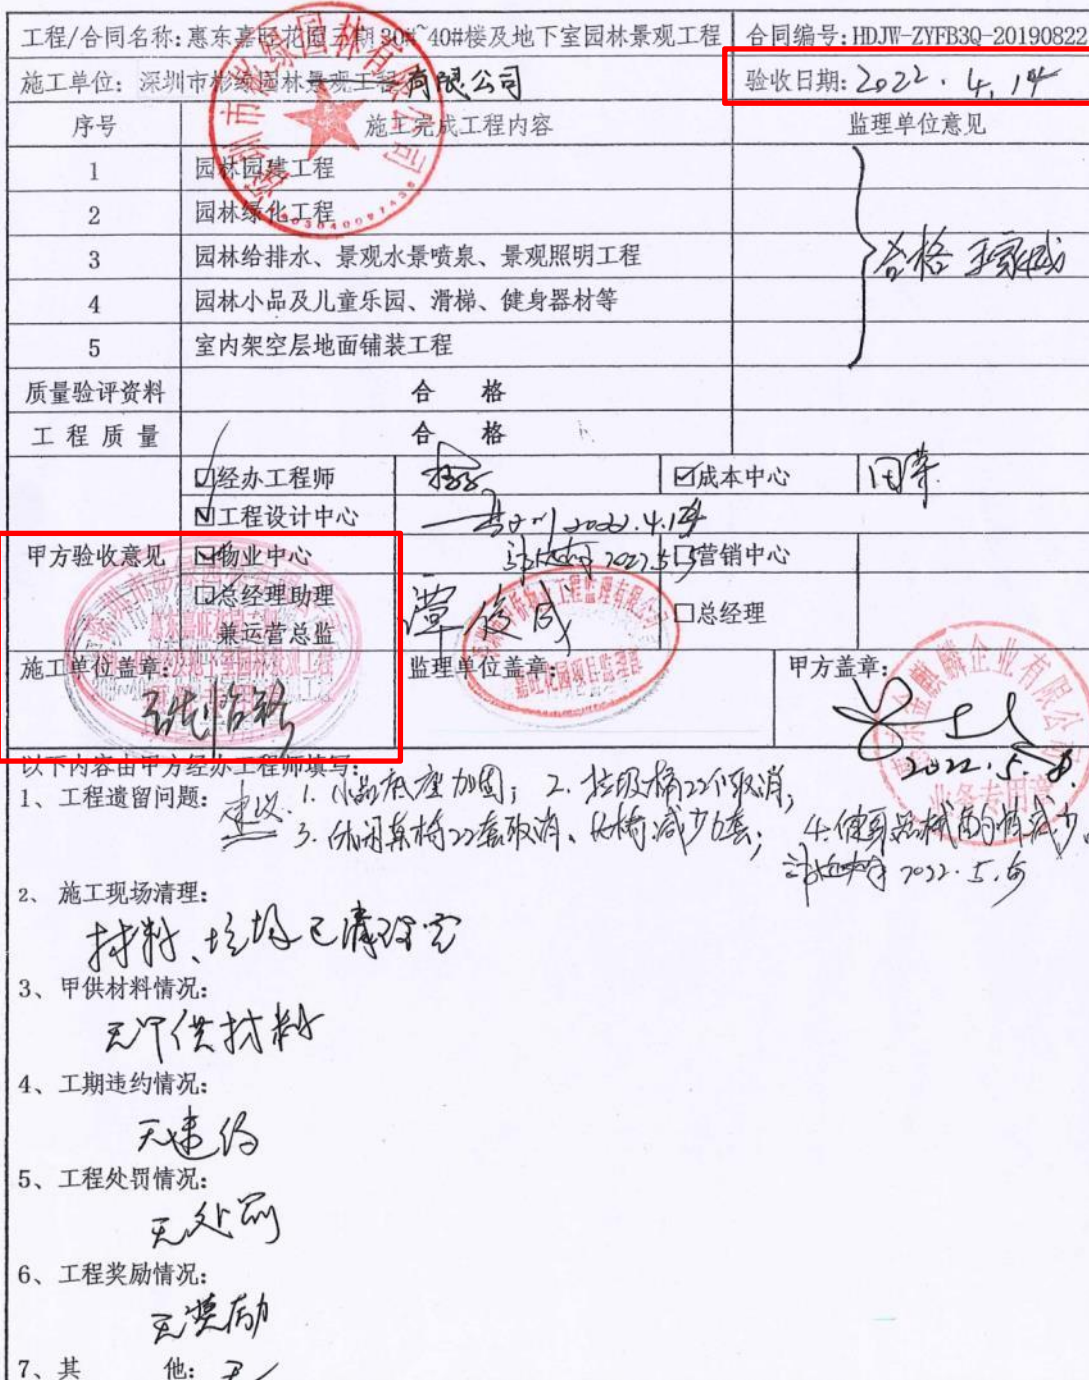 工程/合同名称：惠东嘉旺花园三期30#~40#楼及地下室园林景观工程 合同编号：HDJW-ZYFB3Q-20190822
施工单位：深圳市彬绿园林景观工程有限公司 验收日期：2022.4.14
序号 施工完成工程内容 监理单位意见
1 园林园建工程
2 园林绿化工程
3 园林给排水、景观水景喷泉、景观照明工程 合格
4 园林小品及儿童乐园、滑梯、健身器材等
5 室内架空层地面铺装工程
质量验评资料 合 格
工程质量 合 格
☑经办工程师 ☑成本中心
☑工程设计中心 2022.4.14
甲方验收意见 ☑物业中心 2022.5.5 □营销中心
□总经理助理 兼运营总监 谭俊成 □总经理
施工单位盖章： 监理单位盖章： 甲方盖章：
2022.5.8.
以下内容由甲方经办工程师填写：
1、工程遗留问题：建议：1.小品底座加固；2.垃圾桶22个取消；
3.休闲桌椅22套取消、长椅减少6套；4.健身器械
2022.5.5
2、施工现场清理：
材料、垃圾已清理完
3、甲供材料情况：
无甲供材料
4、工期违约情况：
无违约
5、工程处罚情况：
无处罚
6、工程奖励情况：
无奖励
7、其 他：无